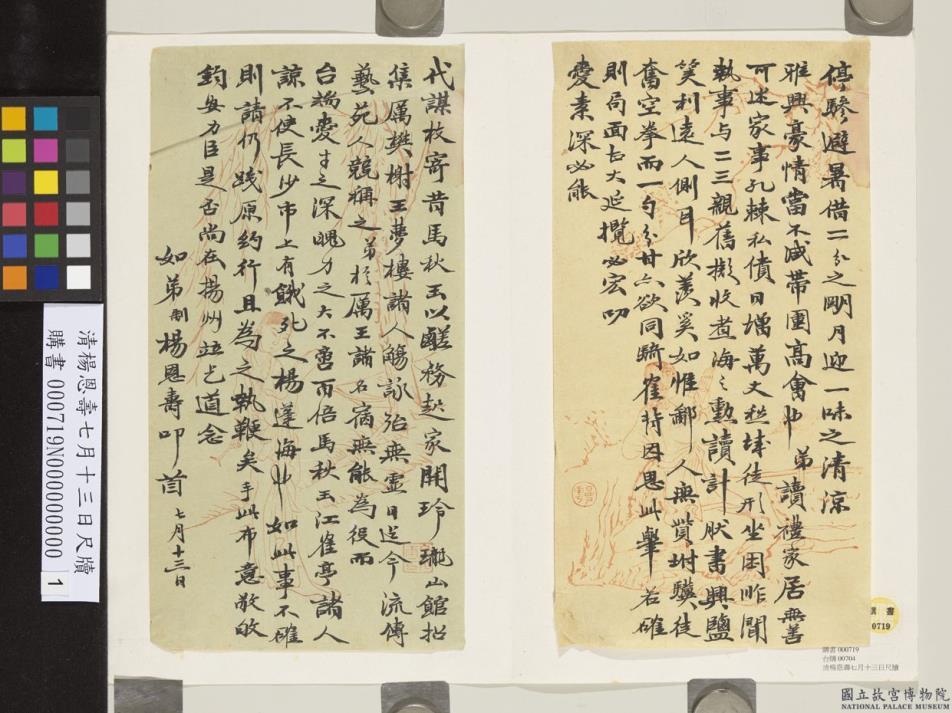 停驂避暑借二分之明月迎一味之清涼
雅興豪情當不減帶團高會也弟讀禮家居無善
可述家事孔棘私債日增萬丈愁城徒形坐困昨聞
執事与二三親舊擬收煮海之勳讀計肰書興鹽
笑利遠人側耳欣羨奚如惟鄙人無貲坿驥徒
奮空拳而一勺分甘亦欲同騎隺特因思此舉若確
則局面古大延攬必宏叨
愛素深必能
代謀枝寄昔馬秋玉以鹺務起家開玲瓏山館招
集厲樊榭王夢樓諸人觴詠殆無虛日迄今流傳
藝苑人競稱之弟於厲王諸名宿無能為役而
台端愛士之深魄力之大不啻而倍馬秋玉江隺亭諸人
諒不使長沙市上有餓死之楊蓬海也如此事不確
則請仍踐原約行且為之執鞭矣手此布意敬頌
鈞安力臣是否尚在揚州竝乞道念
如弟制楊恩壽叩首七月十三日
清楊恩壽七月十三日尺牘
購書 000719N000000000
1
購書
0719
購書000719
台購00704
清楊恩壽七月十三日尺牘
國立故宮博物院
NATIONAL PALACE MUSEUM